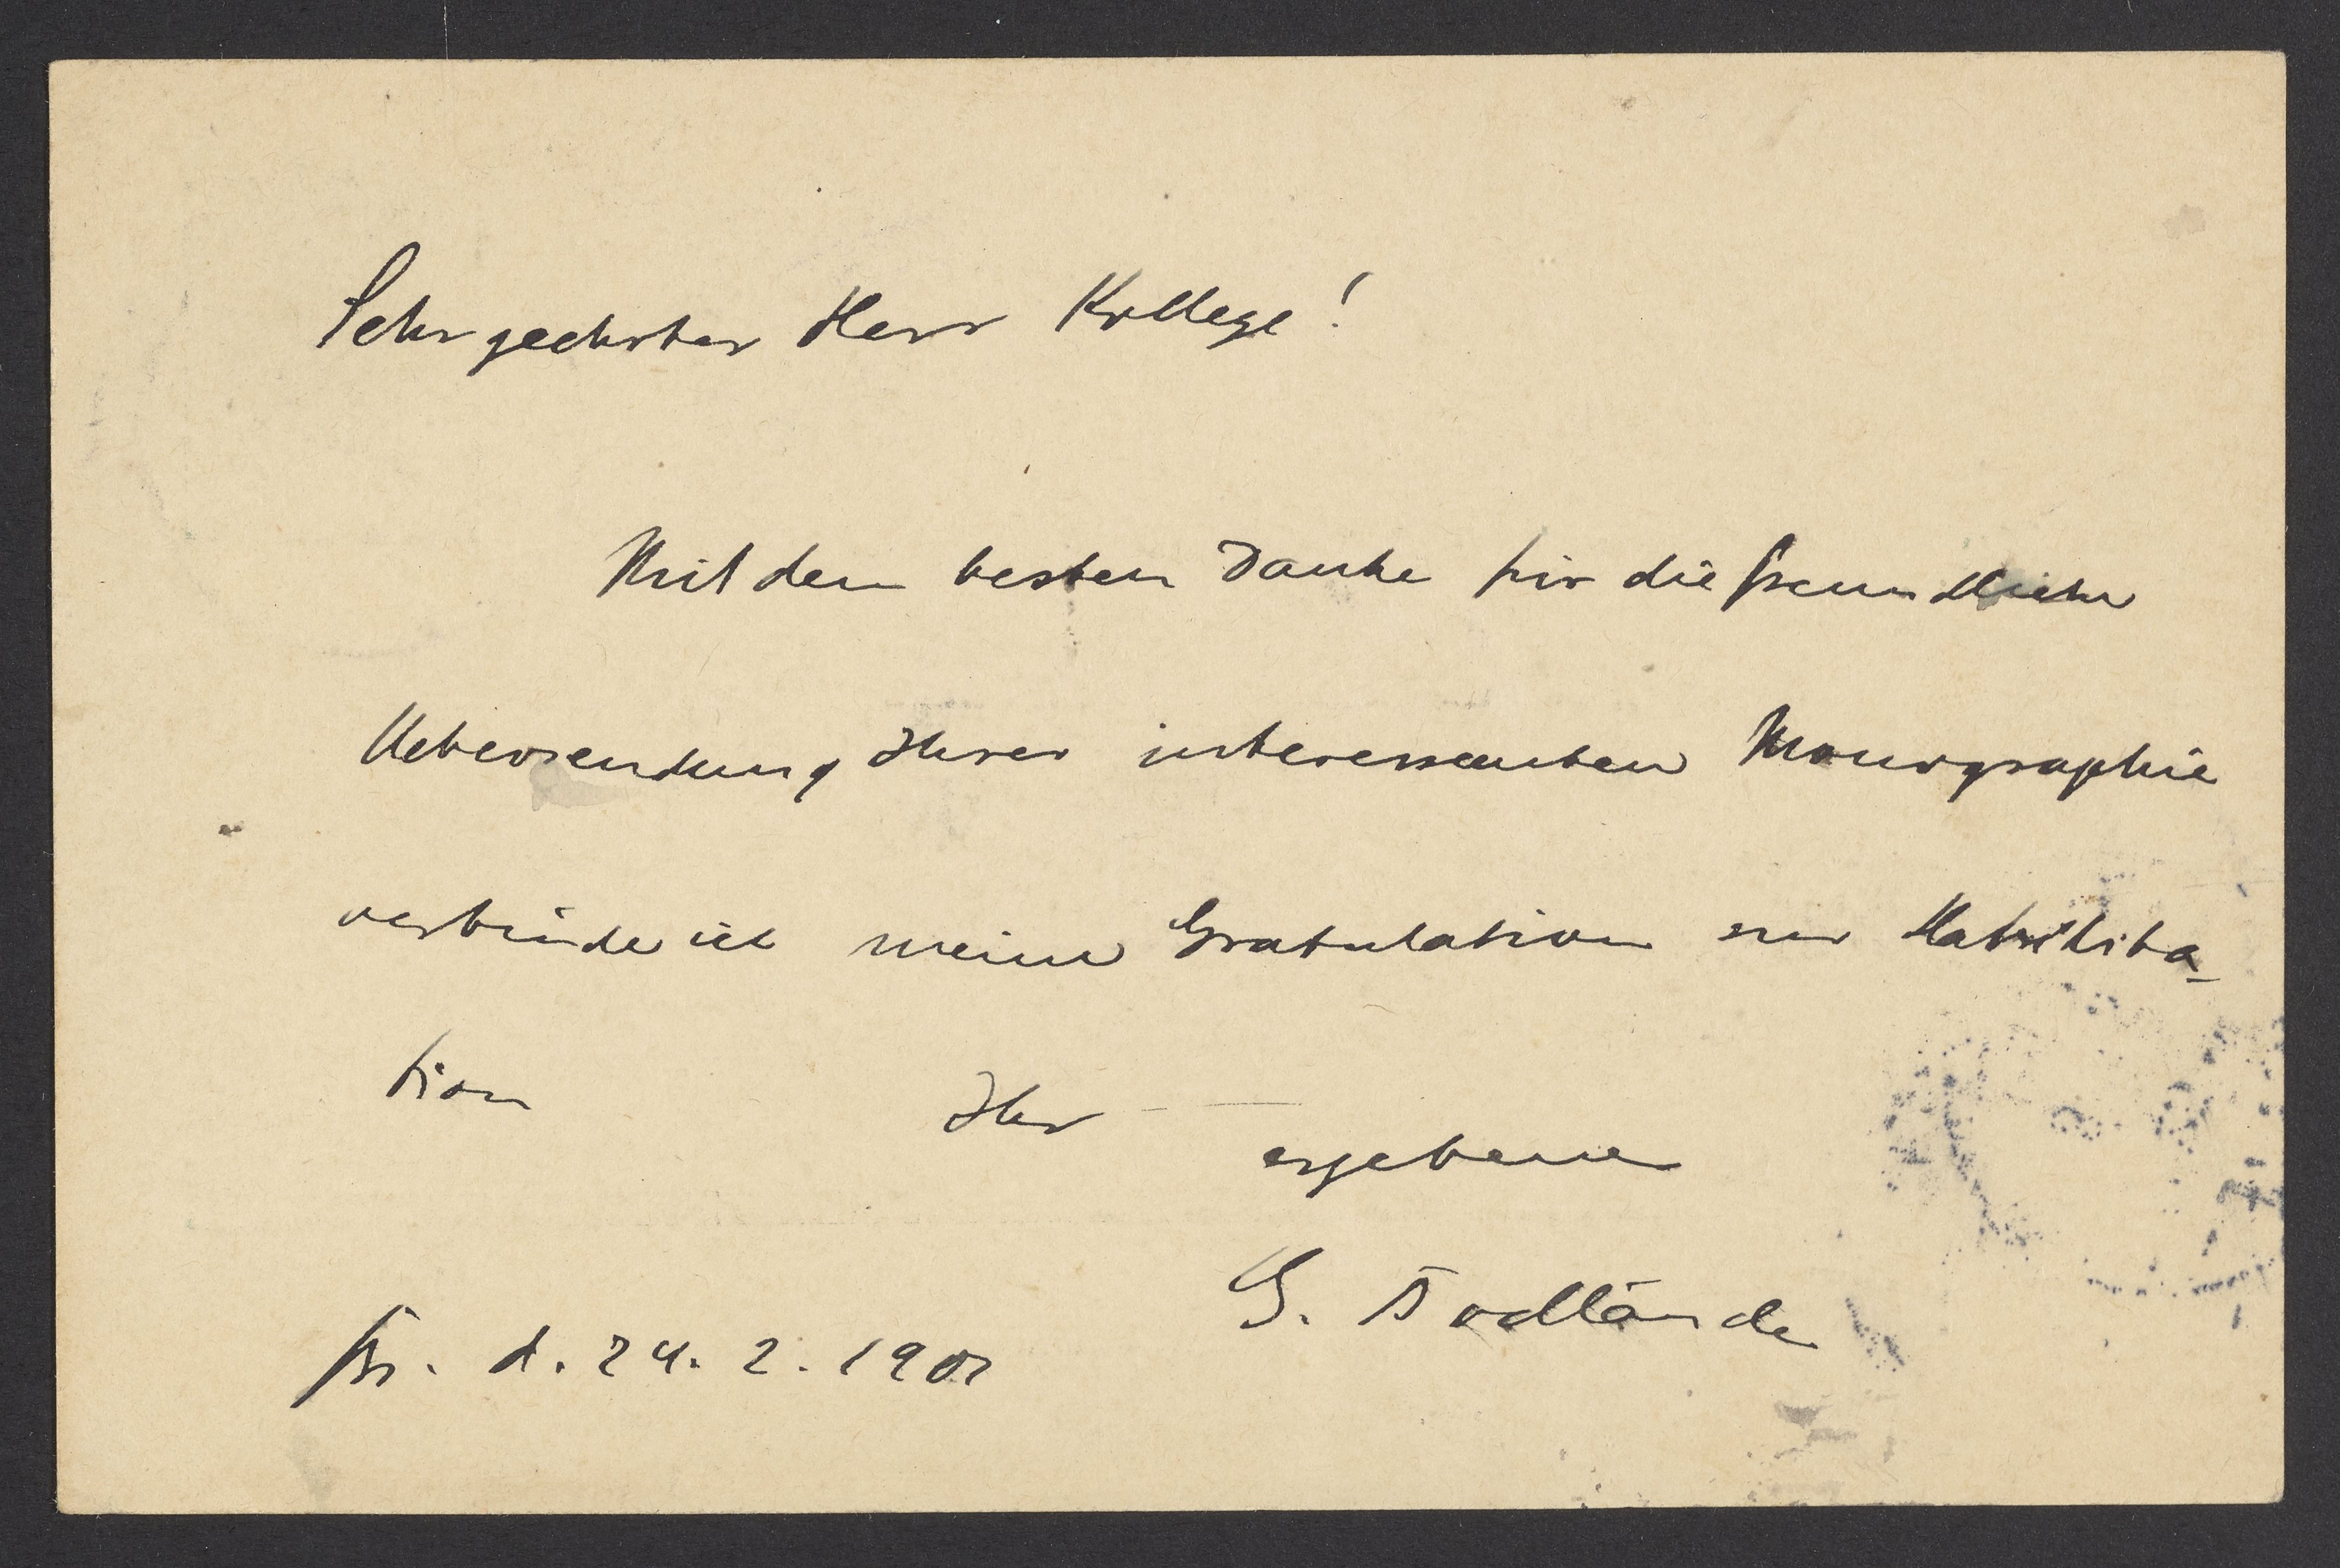 Sehr geehrter Herr Kollege!
Mit dem besten Danke für die freundliche
Uebersendung Ihrer interessanten Monographie
verbinde ich meine Gratulation zur Habilita-
tion
Ihr
ergebener
G. Bodländer
Br. d. 24. 2. 1901